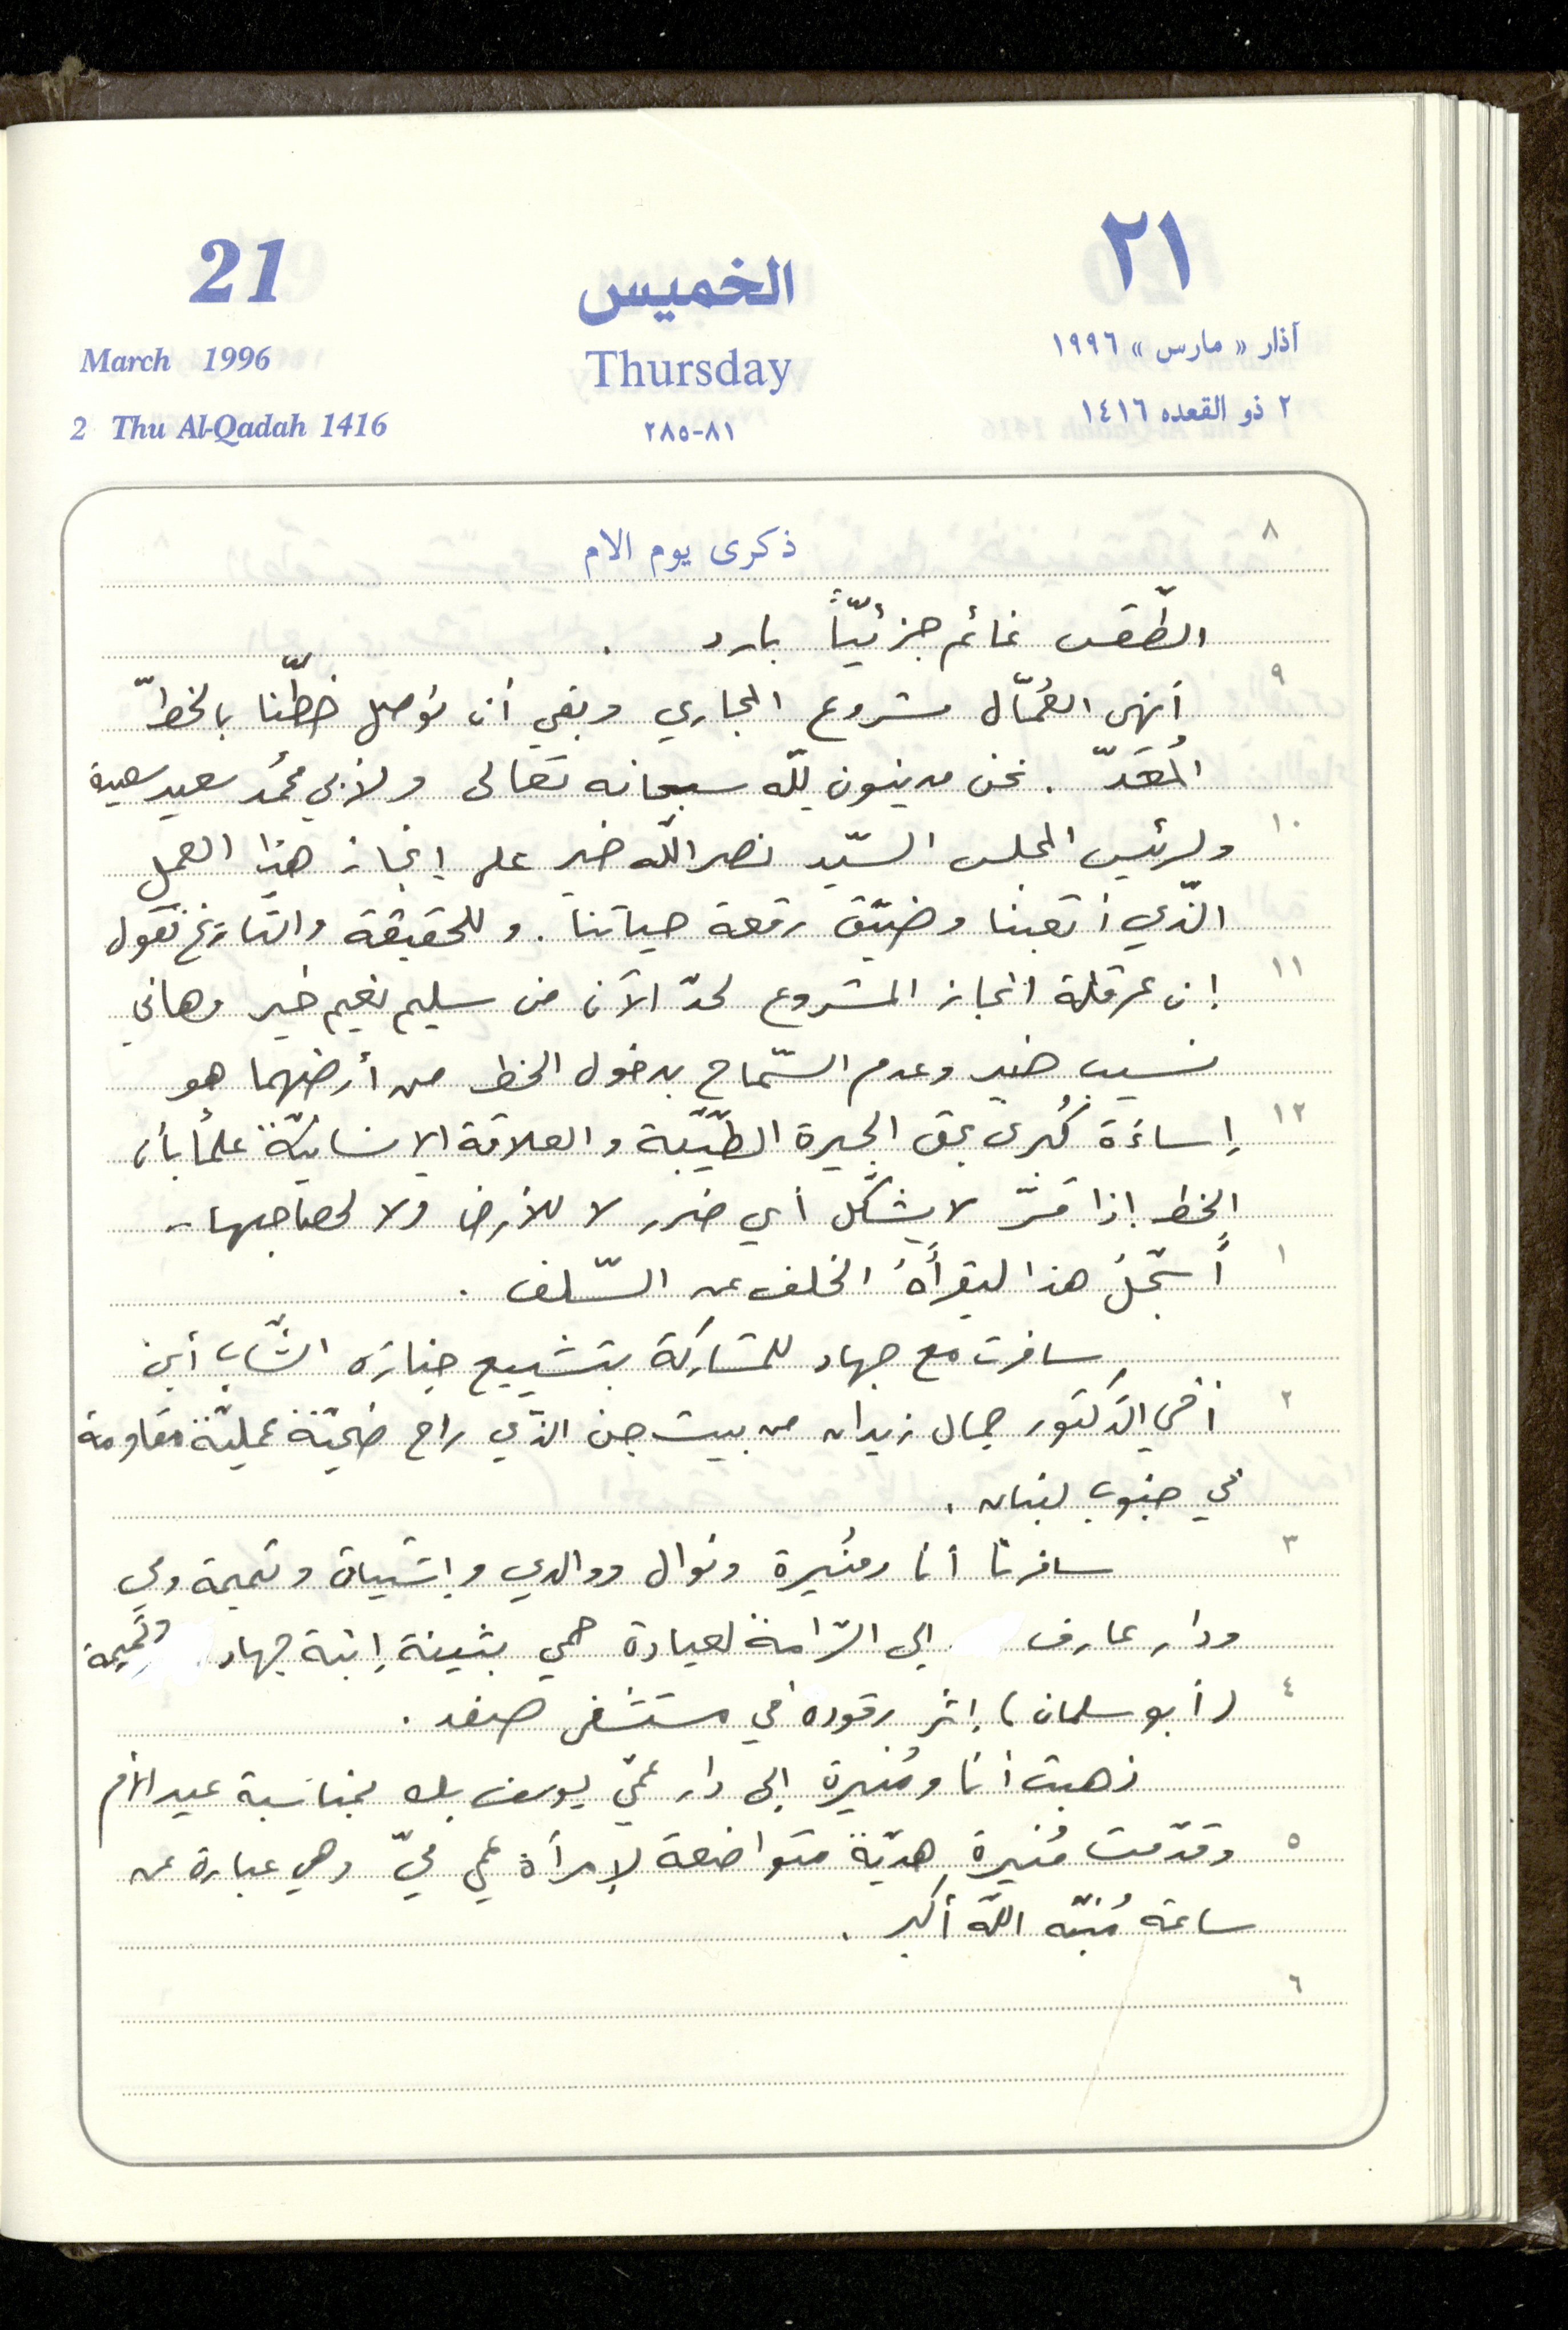 21
الخميس
٢١
March 1996
Thursday
آذار « مارس » ١٩٩٦
2 Thu Al-Qadah 1416
٨١-٢٨٥
٢ ذو القعده ١٤١٦
٨ ذكرى يوم الام
الطّقس غائم جزئيّاً بارد .
٩ أنهى العُمّال مشروع المجاري وبقي أن نوصل خطّنا بالخطّ
المُعَدّ . نحن مدينون للّه سبحانه تعالى ولأبي محمُد سعيد سعيد
١٠ ولرئيس المجلس السّيد نصر اللّه خير على إنجاز هذا العمل
الذّي أتعبنا وضيّق رقعة حياتنا . وللحقيقة والتّاريخ نقول
١١ إن عرقلة انجاز المشروع لحدّ الآن من سليم نعيم خير وهاني
نسيب خير وعدم السّماح بدخول الخط من أرضهما هو
١٢ إساءَة كُبرى بحق الجيرة الطّيّبة والعلاقة الإنسانيّة علماً بأن
الخط إذا مَرّ لا يشكّل أي ضرر لا للأرض ولا لصاحبها -
١ أُسجّلُ هذا ليقرأَهُ الخلف عن السّلف .
سافرت مع جهاد للمشاركة بتشييع جنازة الشّاب أبن
٢ أخي الدّكتور جمال زيدان من بيت جن الذّي راح ضحيّة عمليّة مقاومة
في جنوب لبنان .
٣ سافرنا أنا ومُنيرة ونوال ووالدي وإشتياق وتميمة ومي
ودار عارف إلى الرّامة لعيادة حمي بثينة إبنة جهاد وتميمة
٤ ( أبو سلمان ) إثر رقوده في مستشفى صفد .
ذهبت أنا ومُنيرة إلى دار عمّي يوسف بك بمناسبة عيد الأم
٥ وقدّمت مُنيرة هديّة متواضعة لإمرأة عمي ميّ وهي عبارة عن
ساعة مُنبّه اللّه أكبر .
٦